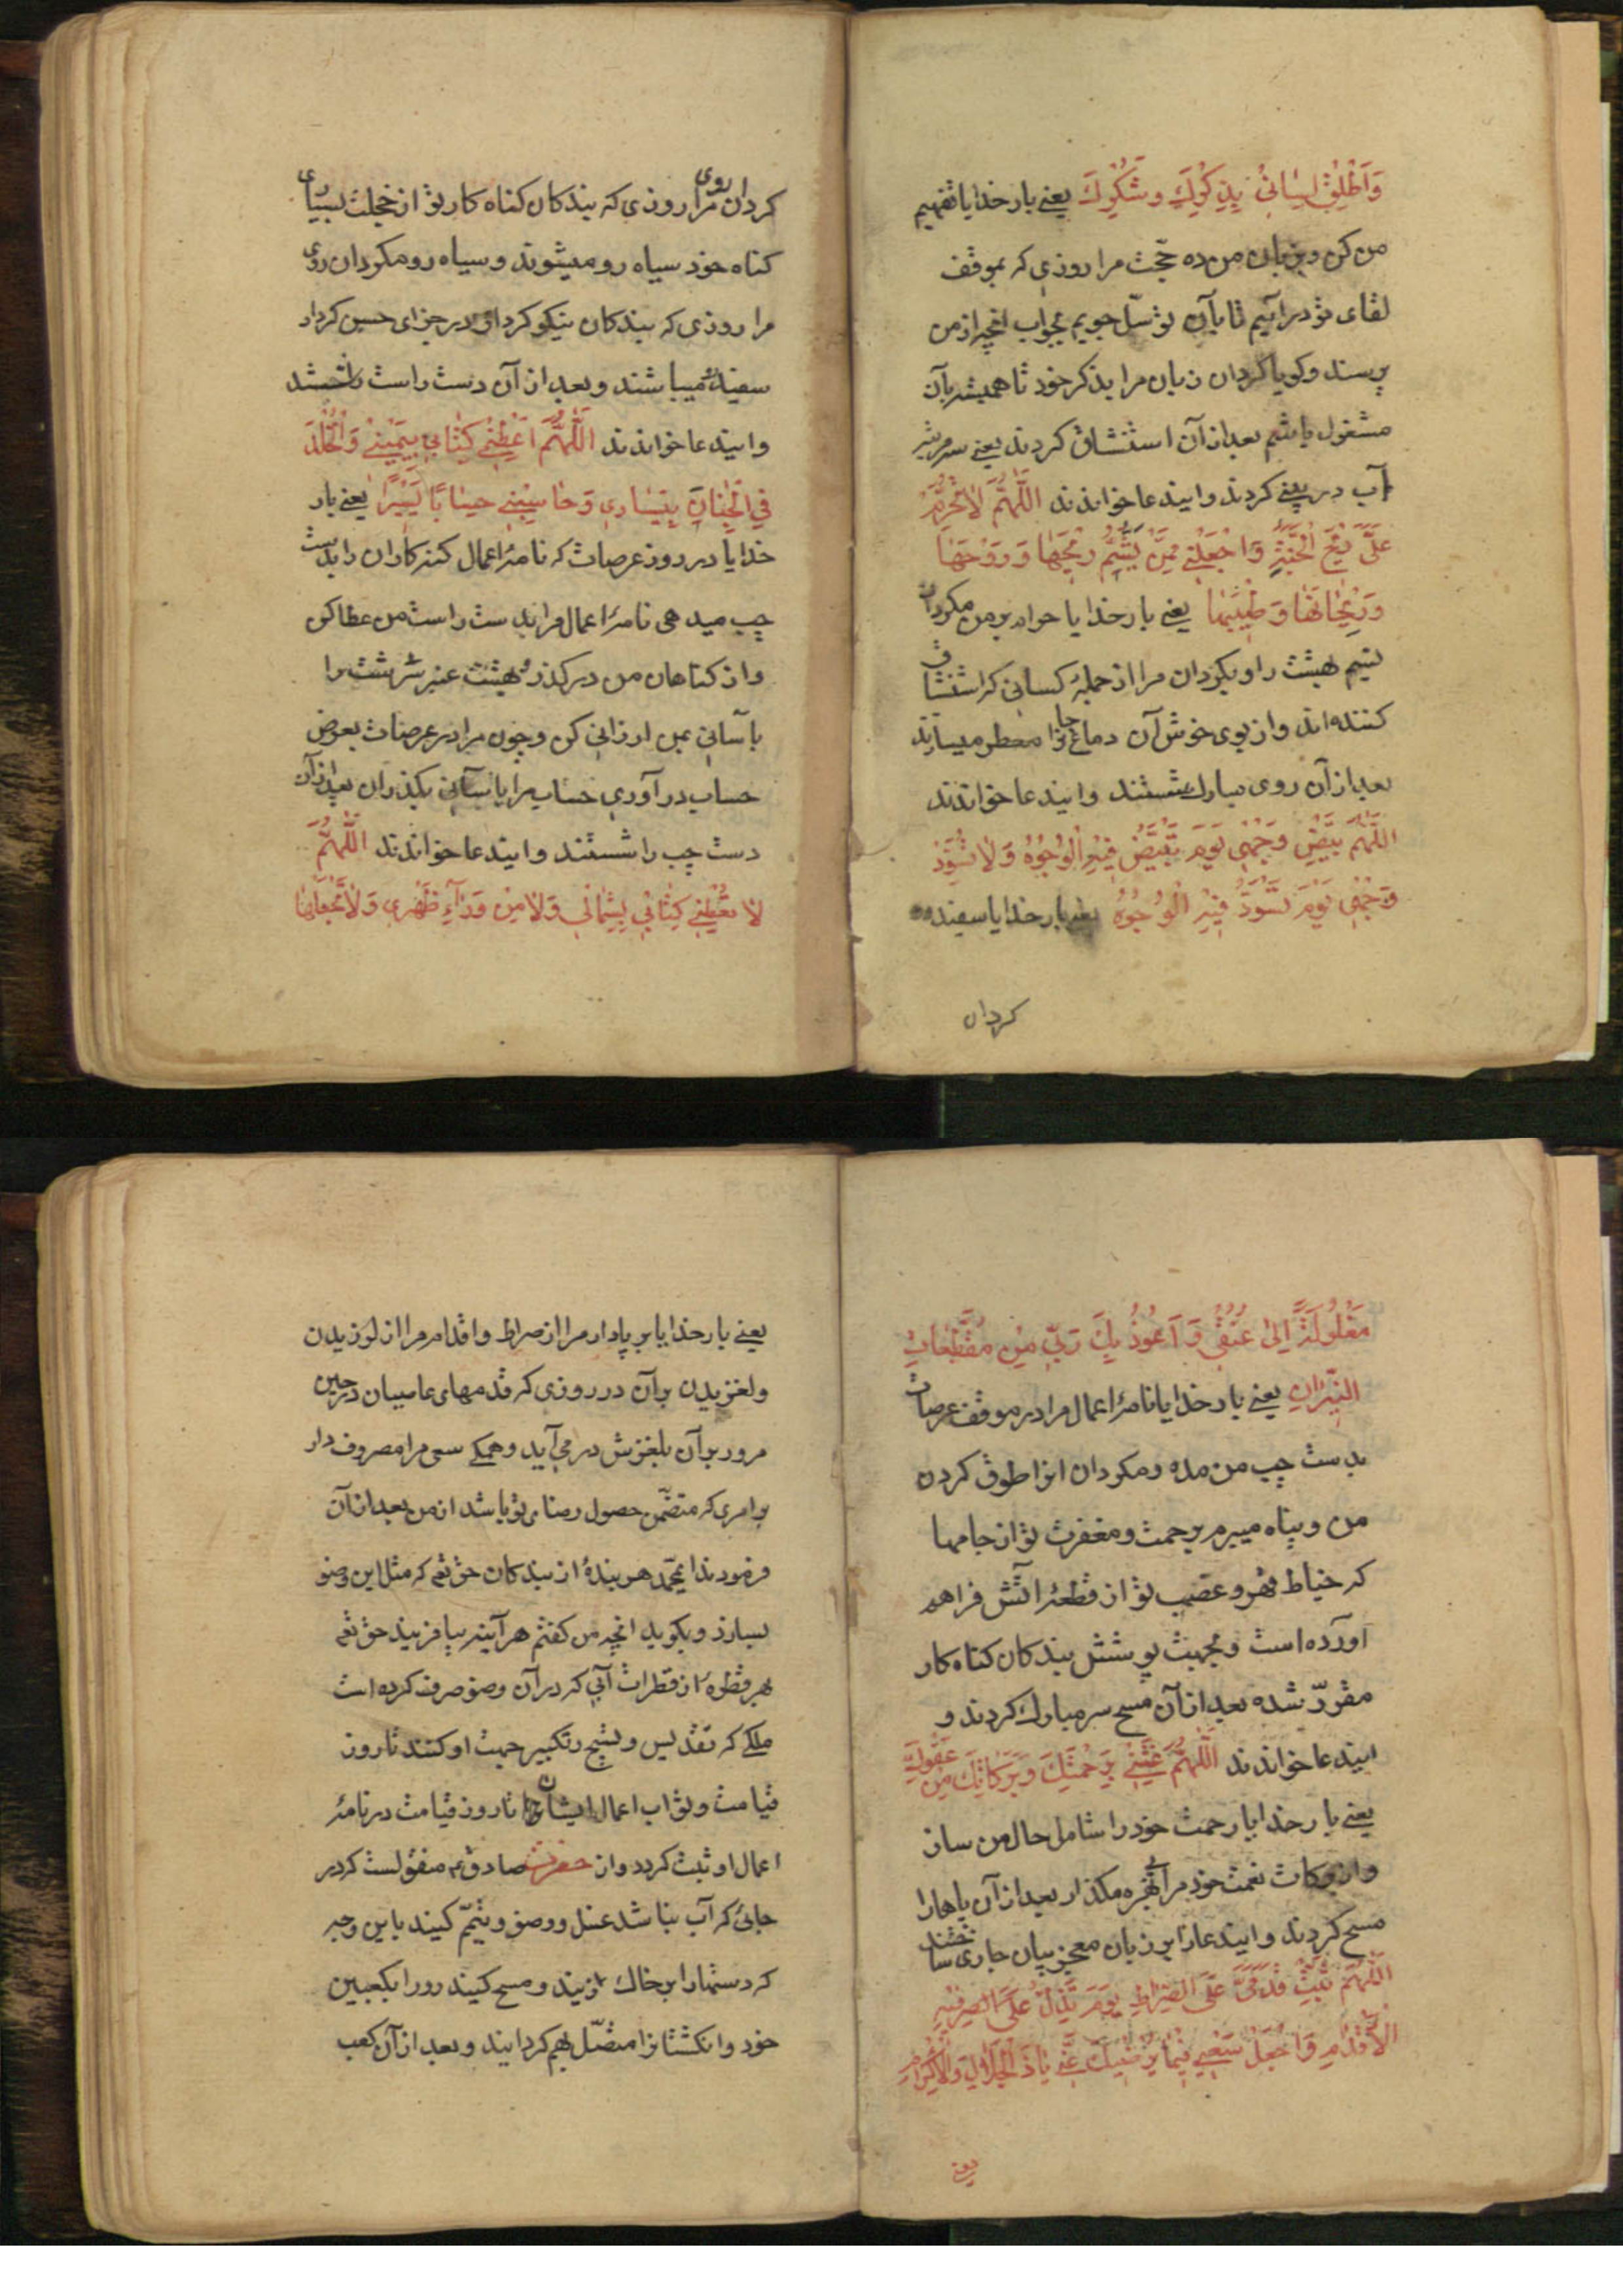 وَاَطْلِقْ لِسَانِیْ بِذِکْرِكَ وَشُكْرِكَ یعنے بار خدایا تفهیم
من کن و بزبان من ده حجّت مرا روزی که بموقف
لقای تو درآئیم تا بآن توسّل جویم بجواب انچه از من
پرسند و کویا کردان زبان مرا بذکر خود تا همیشه بآن
مشغول باشم بعد از آن استنشاق کردند یعنے سه مرتبه
آب در بینے کردند و ایندعا خواندند اَللّٰهُمَّ لَا تُحَرِّمْ
عَلَیَّ رِیْحَ الْجَنَّةِ وَاجْعَلْنِیْ مِمَّنْ یَشُمُّ رِیْحَهَا وَرَوْحَهَا
وَرَیْحَانَهَا وَطِیْبَهَا یعنے بار خدایا حرام بر من مکردان
نسیم بهشت را و بکردان مرا از جملهٔ کسانی که استنشاق
کننده‌اند و از بوی خوش آن دماغ جانرا معطر میسازند
بعد از آن روی مبارك شستند و ایندعا خواندند
اَللّٰهُمَّ بَیِّضْ وَجْهِی یَوْمَ تَبْیَضُّ فِیْهِ الْوُجُوْهُ وَلَا تُسَوِّدْ
وَجْهِی یَوْمَ تَسْوَدُّ فِیْهِ الْوُجُوْهُ یعنے بار خدایا سفید
کردان
کردان روی مرا روزی که بندکان کناه کار تو از خجلت بسیاری
کناه خود سیاه رو میشوند و سیاه رو مکردان روی
مرا روزی که بندکان نیکو کردار در جزای حسن کردار
سفید رو میباشند و بعد از آن دست راست را شستند
و ایندعا خواندند اَللّٰهُمَّ اَعْطِنِیْ کِتَابِیْ بِیَمِیْنِیْ وَالْخُلْدَ
فِی الْجِنَانِ بِیَسَارِی وَحَاسِبْنِیْ حِسَابًا یَسِیْرًا یعنے بار
خدایا در روز عرصات که نامهٔ اعمال کنه کاران را بدست
چپ میدهی نامهٔ اعمال مرا بدست راست من عطا کن
و از کناهان من درکذر و بهشت عنبر سرشت را
بآسانی بمن ارزانی کن و چون مرا در عرصات بعرض
حساب درآوری حساب مرا بآسانی بکذران بعد از آن
دست چپ را شستند و ایندعا خواندند اَللّٰهُمَّ
لَا تُعْطِنِیْ کِتَابِیْ بِشِمَالِی وَلَا مِنْ وَرَآءِ ظَهْرِی وَلَا تَجْعَلْهَا
مَغْلُوْلَةً اِلٰی عُنُقِیْ وَاَعُوْذُ بِكَ رَبِّ مِنْ مُقَطَّعَاتِ
النِّیْرَانِ یعنے بار خدایا نامهٔ اعمال مرا در موقف عرصات
بدست چپ من مده و مکردان انرا طوق کردن
من و پناه میبرم برحمت و مغفرت تو از جامها
که خیاط قهر و غضب تو از قطعهٔ اتش فراهم
آورده است و بجهت پوشش بندکان کناه کار
مقرّر شده بعد از آن مسح سر مبارك کردند و
ایندعا خواندند اَللّٰهُمَّ غَشِّنِیْ بِرَحْمَتِكَ وَبَرَکَاتِكَ مِنْ عَفْوِكَ
یعنے بار خدایا رحمت خود را شامل حال من ساز
و از برکات نعمت خود مرا بی بهره مکذار بعد از آن پاها را
مسح کردند و ایندعا را بر زبان معجز بیان جاری ساختند
اَللّٰهُمَّ ثَبِّتْ قَدَمَیَّ عَلَی الصِّرَاطِ یَوْمَ تَزِلُّ عَلَی الصر فِیْهِ
الْاَقْدَامُ وَاجْعَلْ سَعْیِیْ فِیْمَا یُرْضِیْكَ عَنِّیْ یَا ذَا الْجَلَالِ وَالْاِکْرَامِ
یعنے
یعنے بار خدایا بر پا دار مرا از صراط و اقدام مرا از لرزیدن
و لغزیدن بر آن در روزی که قدمهای عاصیان در حین
مرور بر آن بلغزش در می‌آید و همکی سعی مرا مصروف دار
بر امری که متضمّن حصول رضای تو باشد از من بعد از آن
فرمودند ایمحمد هر بندهٔ از بندکان حق تعم که مثل این وضو
بسازد و بکوید انچه من کفتم هر آینه بیافریند حق تعم
بهر قطره از قطرات آبی که در آن وضو صرف کرده است
ملکی که تقدیس و تسبیح و تکبیر جهت او کنند تا روز
قیامت و ثواب اعمال ایشان تا روز قیامت در نامهٔ
اعمال او ثبت کردد و از حضرت صادق ع منقولست که در
جائی که آب نباشد غسل و وضو و تیمّم کنید باین وجه
که دستها را بر خاك زنید و مسح کنید رو را بکعبین
خود و انکشتانرا متصّل بهم کردانید و بعد از آن کعب